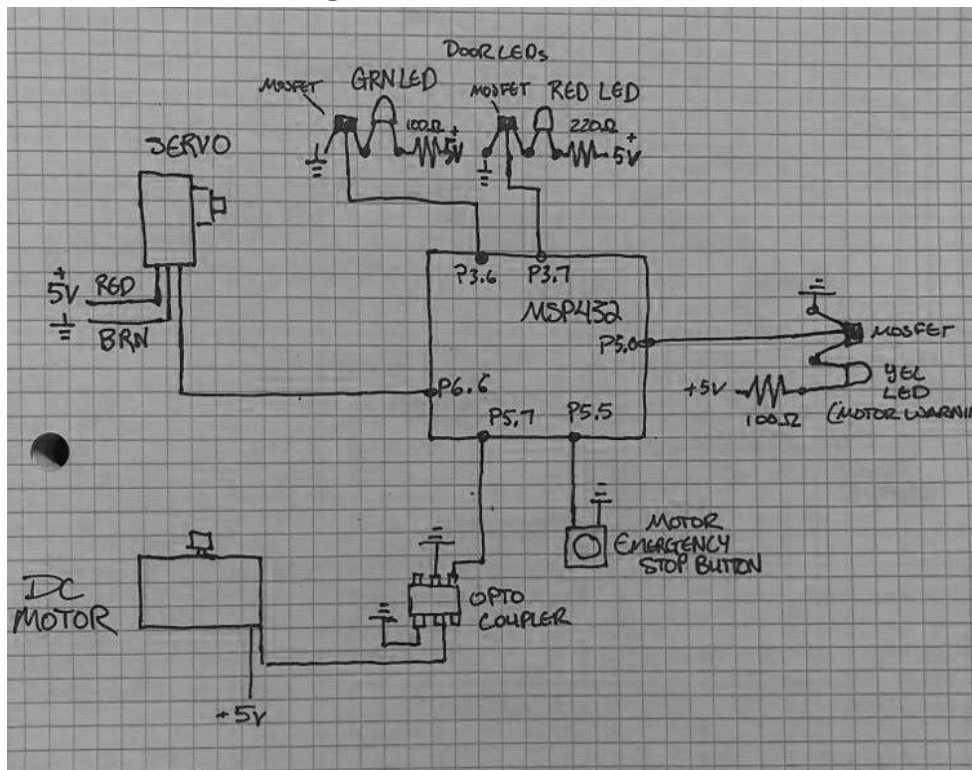 DOOR LEDs
MOSFET
GRN LED
MOSFET
RED LED
100Ω
+
5V
220Ω
+
5V
SERVO
+
5V
RED
BRN
P3.6
P3.7
MSP432
P5.0
P6.6
P5.7
P5.5
MOSFET
+5V
100Ω
YEL
LED
(MOTOR WARNIN
MOTOR
EMERGENCY
STOP BUTTON
DC
MOTOR
OPTO
COUPLER
+5V